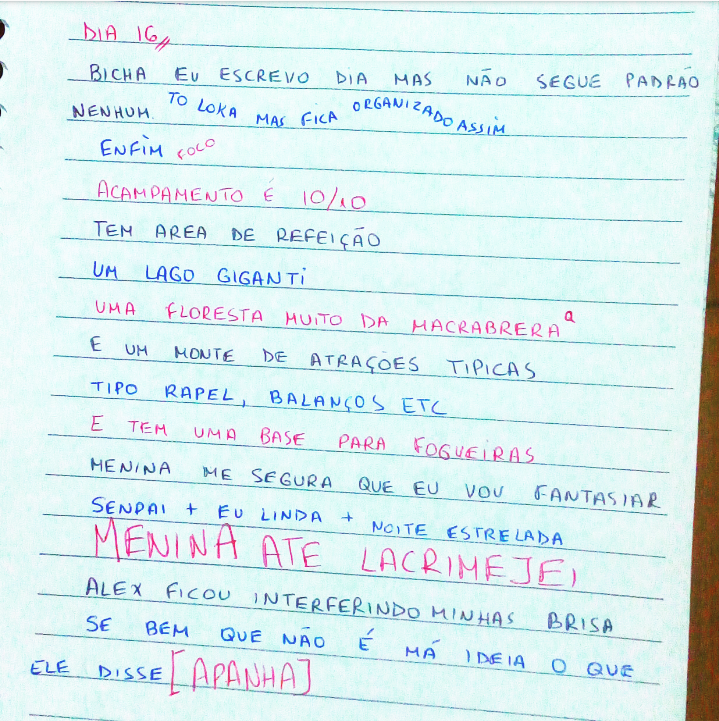 DIA 16,,
BICHA EU ESCREVO DIA MAS NÃO SEGUE PADRÃO
NENHUM. TO LOKA MAS FICA ORGANIZADO ASSIM
ENFIM
ACAMPAMENTO É 10/10
TEM AREA DE REFEIÇÃO
UM LAGO GIGANTI
UMA FLORESTA MUITO DA MACRABRERA
E UM MONTE DE ATRAÇÕES TIPICAS
TIPO RAPEL, BALANÇOS ETC
E TEM UMA BASE PARA FOGUEIRAS
MENINA ME SEGURA QUE EU VOU FANTASIAR
SENPAI + EU LINDA + NOITE ESTRELADA
MENINA ATE LACRIMEJEI
ALEX FICOU INTERFERINDO MINHAS BRISA
SE BEM QUE NÃO É MÁ IDEIA O QUE
ELE DISSE [APANHA]